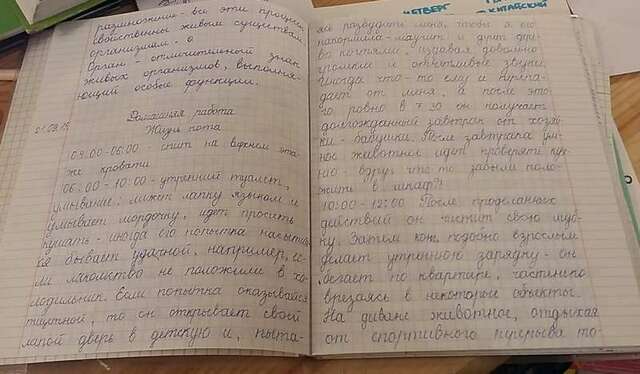 (размножения - все эти процессы
свойственны живым существам,
организмам.
Орган - отличительный знак
живых организмов, выполня-
ющий особые функции.
21.09.15
Домашняя работа
Жизнь кота
03.00-06:00 - спит на верхнем эта-
же кровати
06.00 - 10:00 - утренний туалет,
умывание: лижет лапку языком и
умывает мордочку, идет просить
кушать - иногда его попытка насытить-
ся бывает удачной, например, ес-
ли лакомство не положили в хо-
лодильник. Если попытка оказывается
тщетной, то он открывает своей
лапой дверь в детскую и, пыта-
ЧЕТВЕРГ
КИТАЙСКИЙ
ая разбудить меня, чтобы я его
накормила - мяучит и
когтями - издавая довольно
громкие и отчетливые звуки.
Иногда что-то ему и перепа-
дает от меня, а после это-
го ровно в 7:30 он получает
долгожданный завтрак от хозяй-
ки - бабушки. После завтрака ум-
ное животное идет проверять кух-
ню - вдруг что-то забыли поло-
жить в шкаф?!
10:00 - 12:00 После проделанных
действий он чистит свою шуб-
ку. Затем кот, подобно взрослым
делает утреннюю зарядку - он
бегает по квартире, частенько
врезаясь в некоторые объекты.
На диване животное, отдыхая
от спортивного перерыва то-